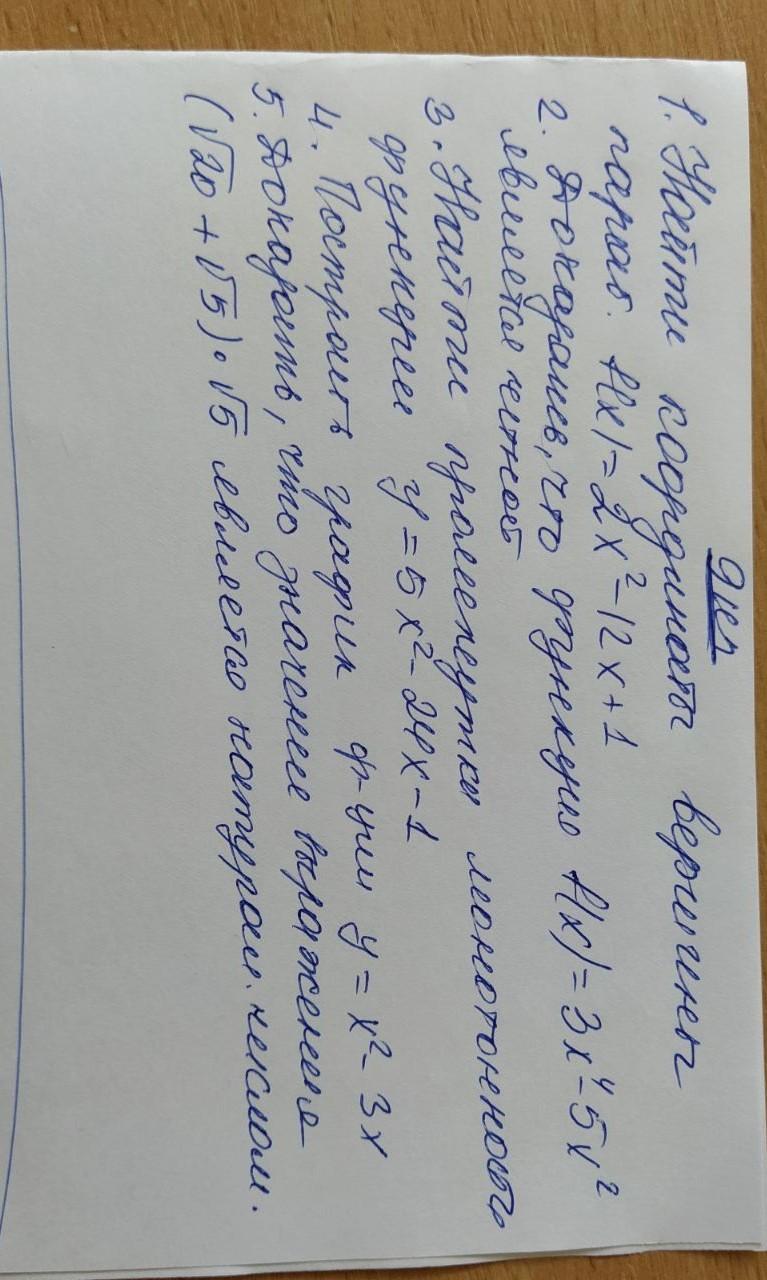 9 кл
1. Найти координаты вершины
параб. f(x) = 2x² - 12x + 1
2. Докажите, что функция f(x) = 3x⁴ - 5x²
является четной
3. Найти промежутки монотонность
функции y = 5x² - 24x - 1
4. Построить график ф-ции y = x² - 3x
5. Доказать, что значение выражения
(√20 + √5) · √5 является натурал. числом.